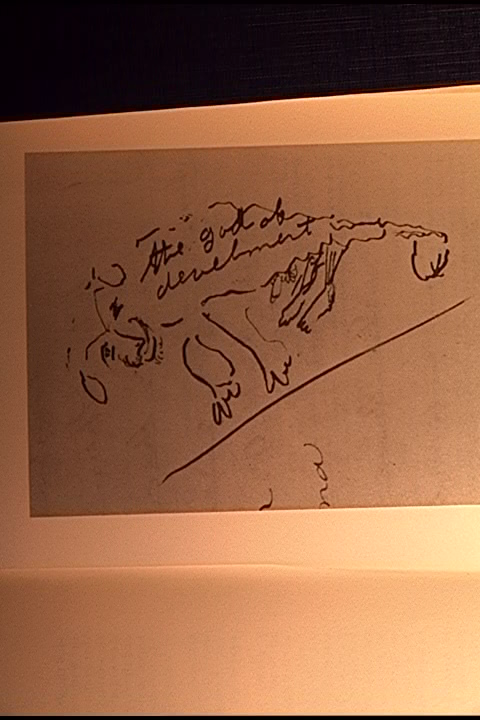 the god of
develbment